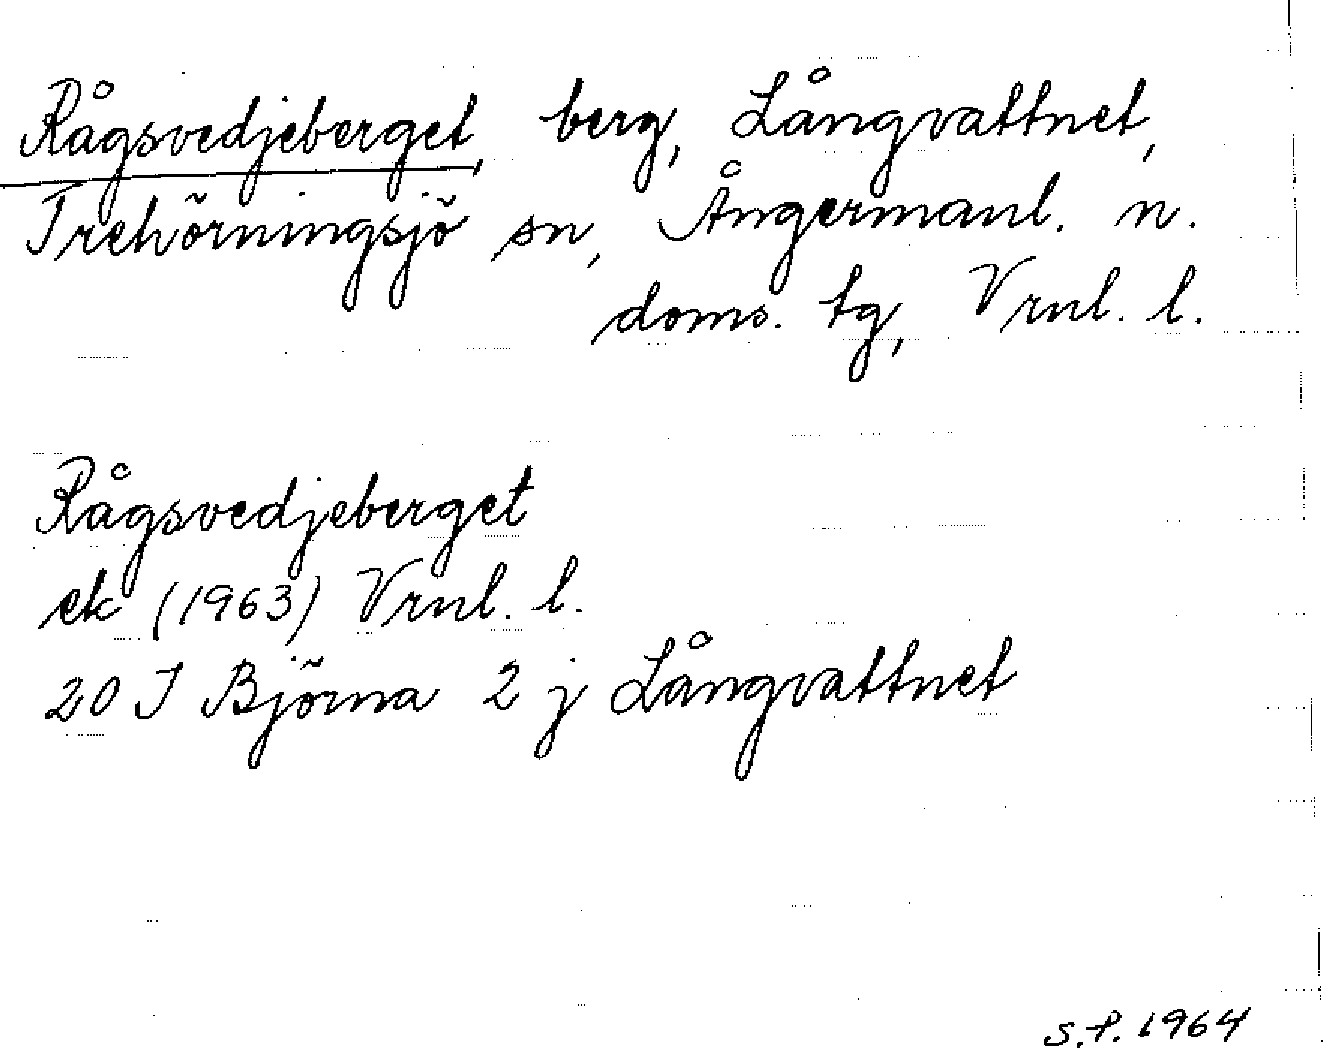 Rågsvedjeberget, berg, Långvattnet,
Trehörningsjö sn, Ångermanl. n.
doms. tg, Vrnl. l.
Rågsvedjeberget
ek (1963) Vrnl. l.
20 I Björna 2 j Långvattnet
S.P. 1964